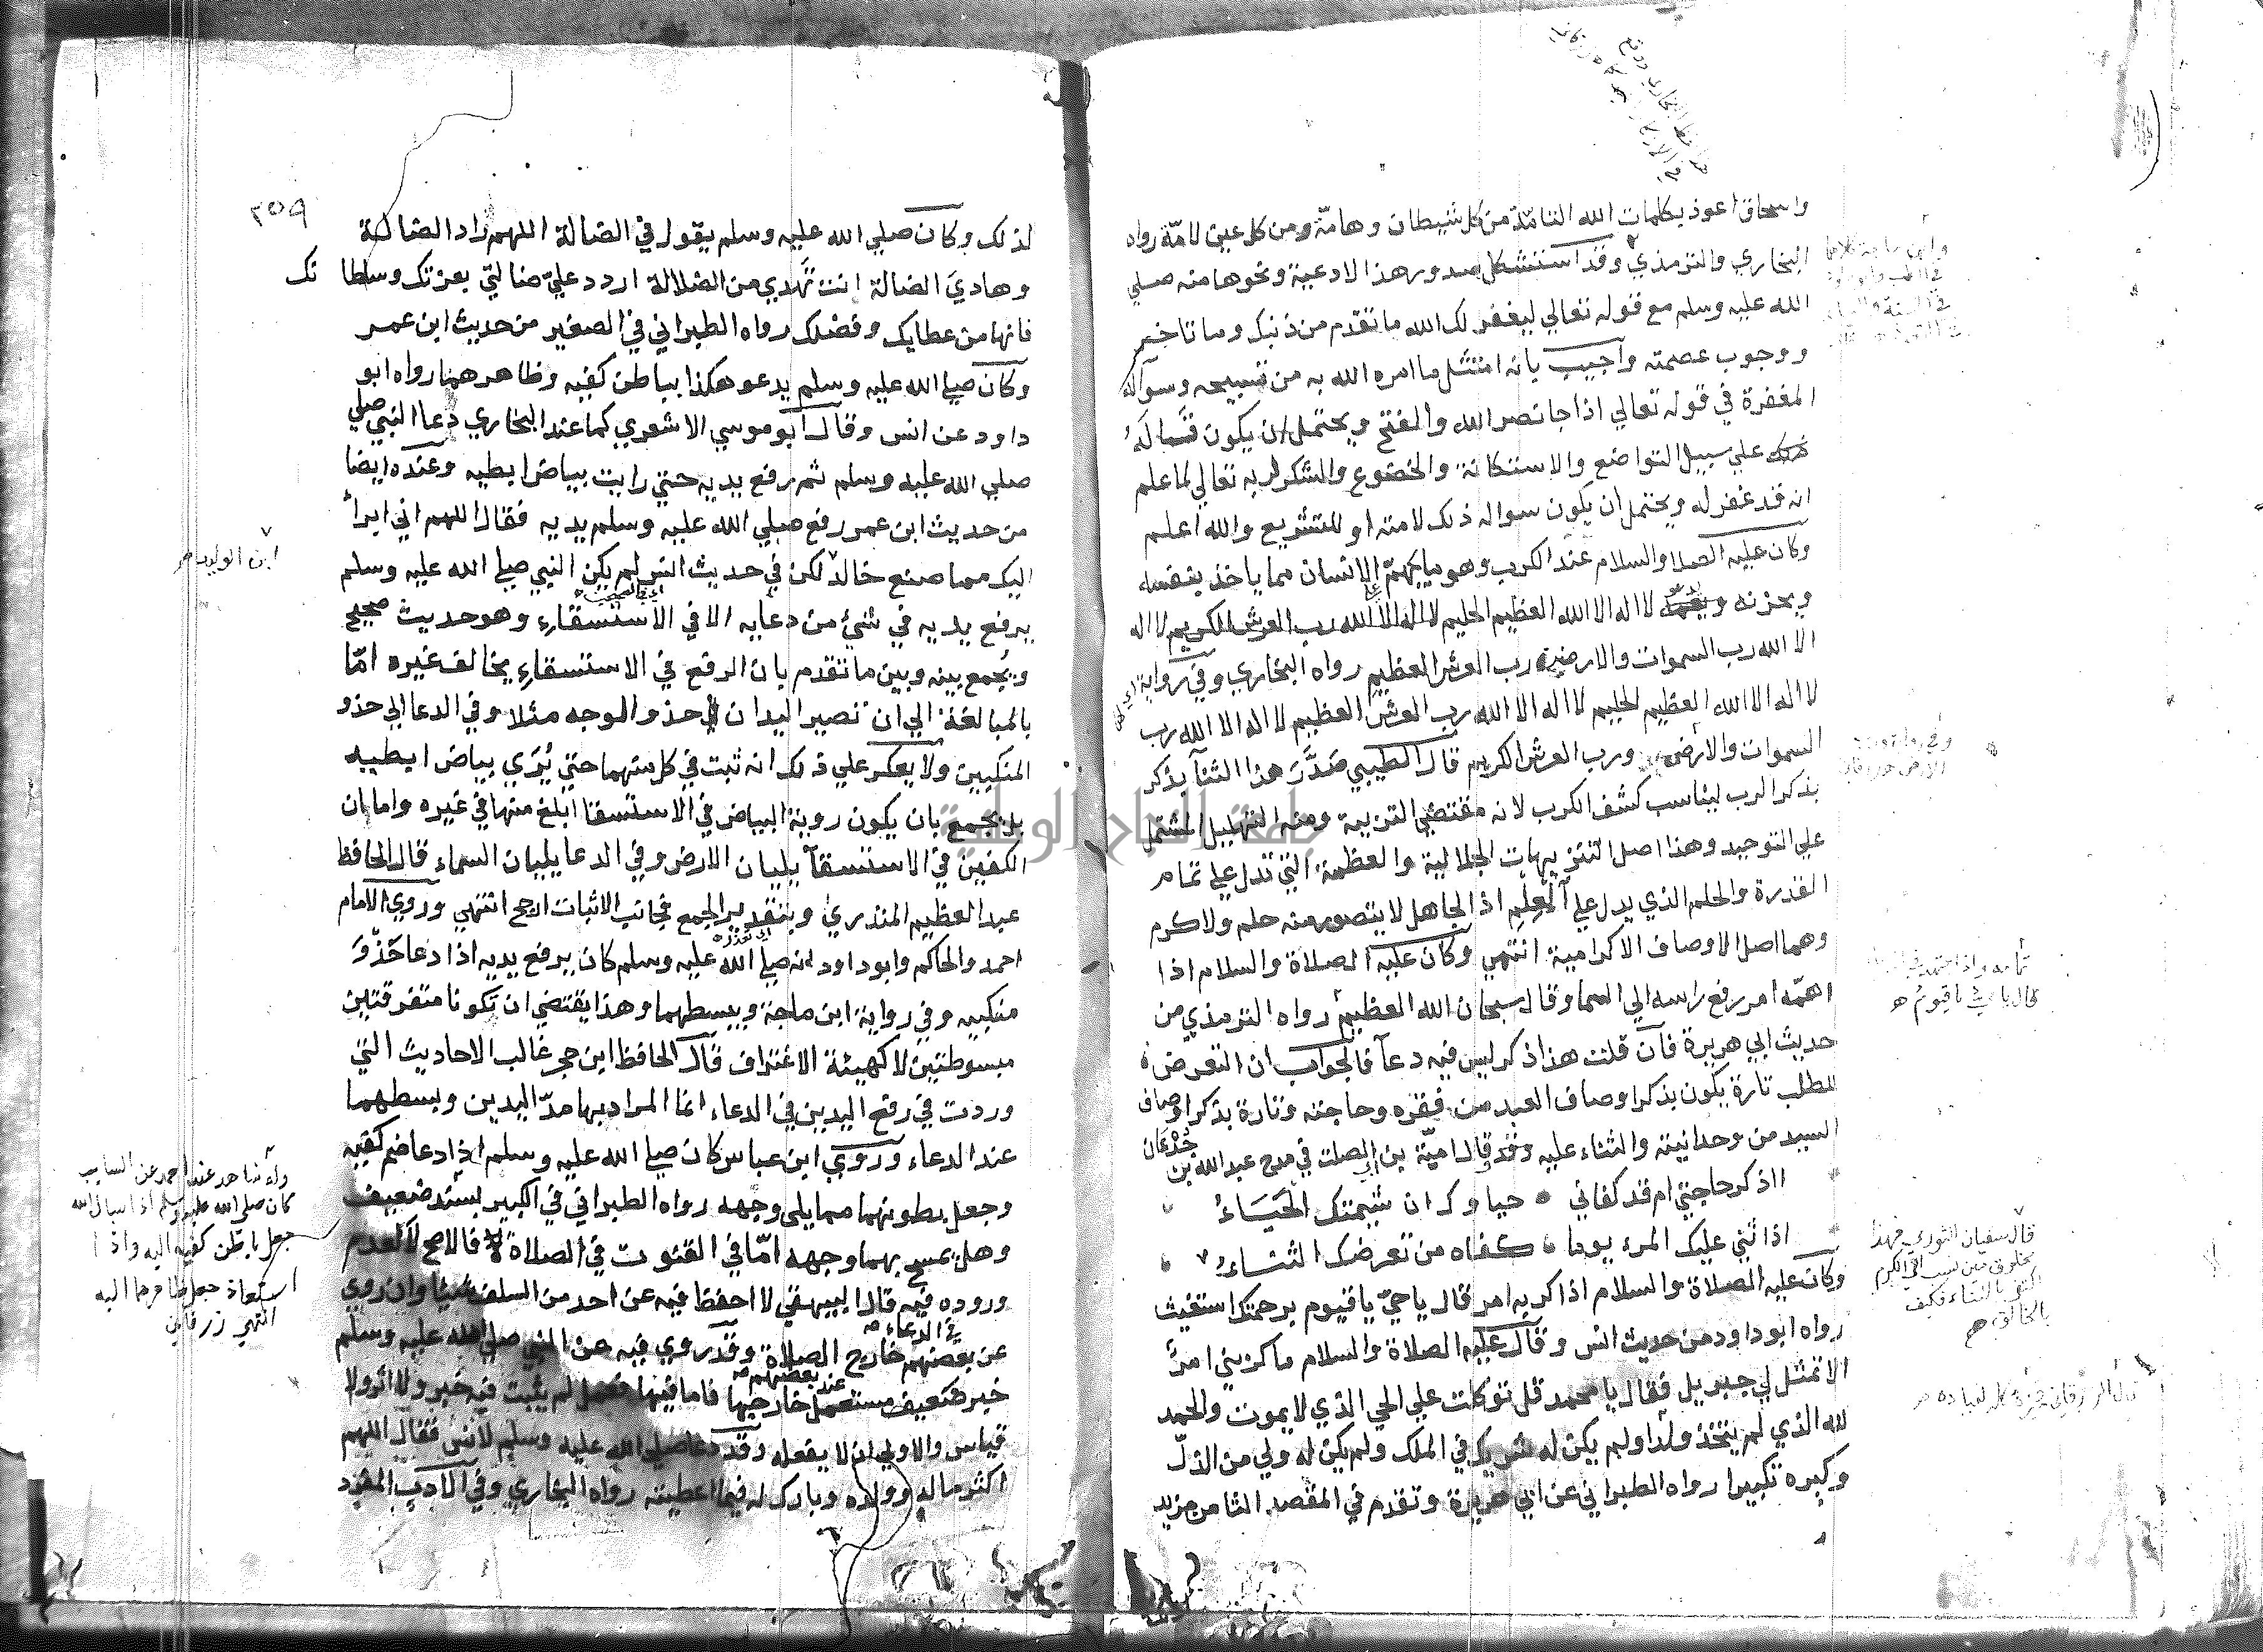 واسحاق اعوذ بكلمات الله التامّة من كل شيطان وهامّة ومن كل عين لامّة رواه
البخاري والترمذي وقد استشكل صدور هذا الادعية ونحوها منه صلي
الله عليه وسلم مع قوله تعالي ليغفر لك الله ما تقدم من ذنبك وما تاخر
ووجوب عصمته واجيب بانه امتثل ما امره الله به من تسبيحه وسواله
المغفرة في قوله تعالي اذا جا نصر الله والفتح ويحتمل ان يكون قسأله
ذلك علي سبيل التواضع والاستكانة والخضوع والشكر لربه تعالي لما علم
انه قد غفر له ويحتمل ان يكون سواله ذلك لامته او للتشريع والله اعلم
وكان عليه الصلا والسلام عند الكرب وهو ما يهمّ الانسان مما ياخذ بنفسه
ويحزنه ويغمه لا اله الا الله العظيم الحليم لا اله الا الله رب العرش الكريم لا اله
الا الله رب السموات والارض رب العرش العظيم رواه البخاري وفي رواية
لا اله الا الله العظيم الحليم لا اله الا الله رب العرش العظيم لا اله الا الله رب
السموات والارض ورب العرش الكريم قال الطيبي صَدَّرَ هذا الثنآ بذكر
بذكر الرب ليناسب كشف الكرب لانه مقتضي التربية ومنه التهليل المشتمل
علي التوحيد وهذا اصل التنزيهات الجلالية والعظمة التي تدل علي تمام
القدرة والحلم الذي يدل علي العِلمِ اذ الجاهل لا يتصور منه حلم ولا كرم
وهما اصل الاوصاف الاكرامية انتهي وكان عليه الصلاة والسلام اذا
اهمّه امر رفع راسه الي السما وقال سبحان الله العظيم رواه الترمذي من
حديث ابي هريرة فان قلت هذا ذكر ليس فيه دعآ فالجواب ان التعرض
للطلب تارة يكون بذكر اوصاف العبد من فقره وحاجته وتارة بذكر اوصاف
السيد من وحدانيته والثناء عليه وقد قال اميّة بن ابي الصلت في مدح عبد الله بن جُدْعَان
ااذكر حاجتي ام قد كفاني حياوك ان شيمتك الحَيَاءُ
اذا اثني عليك المرء يوما كفاه من تعرضك الثناءُ
وكان عليه الصلاة والسلام اذا كربه امر قال يا حيّ يا قيوم برحمتك استغيث
رواه ابو داود من حديث انس وقال عليه الصلاة والسلام ما كربني امرٌ
الا تمثل لي جبريل فقال يا محمد قل توكلت علي الحي الذي لا يموت والحمد
لله الذي لم يتخذ ولدا ولم يكن له شريك في الملك ولم يكن له ولي من الذلّ
وكبره تكبيرا رواه الطبراني عن ابي هريرة وتقدم في المقصد الثامن مزيد
قال يا حي يا قيوم
قال سفيان الثوري فهذا
مخلوق حين نسب الي الكرم
اكتفي بالثناء فكيف
بالخالق
٢٥٩
لذلك وكان صلي الله عليه وسلم يقول في الضالة اللهم راد الضالة
وهاديَ الضالة انت تهدي من الضلالة اردد عليّ ضالتيّ بعزتك وسلطا نك
فانها من عطايك وفضلك رواه الطبراني في الصغير من حديث ابن عمر
وكان صلي الله عليه وسلم يدعو هكذا بباطن كفيه وظاهرهما رواه ابو
داود عن انس وقال ابو موسي الاشعري كما عند البخاري دعا النبي صلي
صلي الله عليه وسلم ثم رفع يديه حتي رايت بياض ابطيه وعنده ايضا
من حديث ابن عمر رفع صلي الله عليه وسلم يديه فقال اللهم اني ابرأ
اليك مما صنع خالد لكن في حديث انس لم يكن النبي صلي الله عليه وسلم
يرفع يديه في شئ من دعايه الا في الاستسقاء وهو حديث صحيح
ويُجمع بينه وبين ما تقدم بان الرفع في الاستسقاء يخالف غيره امّا
بالمبالغة الي ان تصير اليدان في حذو الوجه مثلا وفي الدعا الي حذو
المنكبين ولا يعكر علي ذلك انه ثبت في كل منهما حتي يُرَي بياض ابطيه
بل يجمع بان يكون روية البياض في الاستسقا ابلغ منها في غيره واما ان
الكفين في الاستسقآ يليان الارض وفي الدعا يليان السماء قال الحافظ
عبد العظيم المنذري وبتقدير الجمع فجانب الاثبات ارجح انتهي وروي الامام
احمد والحاكم وابو داود انه صلي الله عليه وسلم كان يرفع يديه اذا دعا حَذْوَ
منكبيه وفي رواية ابن ماجة ويبسطهما وهذا يقتضي ان تكونا متفرقتين
مبسوطتين لا كهيئة الاغتراف قال الحافظ ابن حجر غالب الاحاديث التي
وردت في رفع اليدين في الدعاء انما المراد بها مدّ اليدين وبسطهما
عند الدعاء وروي ابن عباس كان صلي الله عليه وسلم اذا دعا ضم كفيه
وجعل بطونهما مما يلي وجهه رواه الطبراني في الكبير بسند ضعيف
وهل يمسح بهما وجهه امّا في القنوت في الصلاة فالاصح لا لعدم
وروده فيه قال البيهقي لا احفظ فيه عن احد من السلف شيئا وان روي
عن بعضهم في الدعاء خارج الصلاة وقد روي فيه عن النبي صلي الله عليه وسلم
خبر ضعيف مستعمل عند بعضهم خارجها فاما فيها فعمل لم يثبت فيه خبر ولا اثر ولا
قياس والاولي ان لا يفعله وقد دعا صلي الله عليه وسلم لانس فقال اللهم
اكثر ماله وولده وبارك له فيما اعطيته رواه البخاري وفي الادب المفرد
ابن الوليد
وله شاهد عند احمد عن السايب
كان صلي الله عليه وسلم اذا سال الله
جعل باطن كفيه اليه واذا
استعاذ جعل ظاهرهما اليه
انتهي زرقاني
جامعة النجاح الوطنية